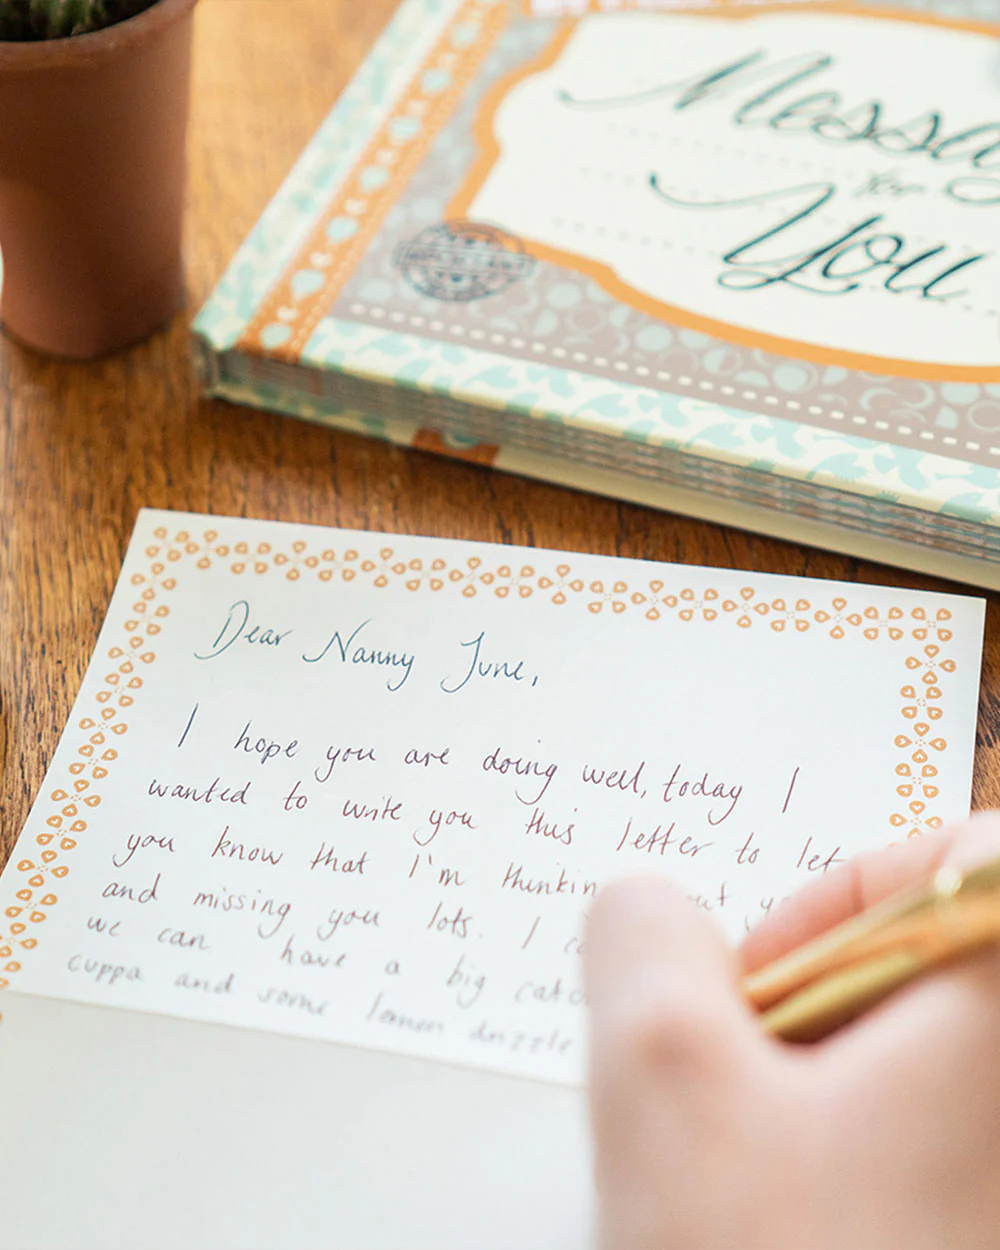 Messag
for
You
Dear Nanny June,
I hope you are doing well, today I
wanted to write you this letter to let
you know that I'm thinkin
and missing you lots. I
we can have a big catc
cuppa and some lemon drizzle